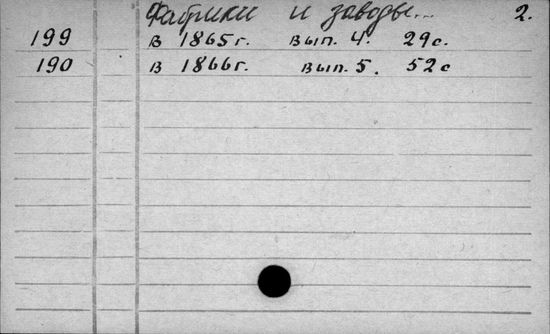 Фабрики и заводы... 2.
199 в 1865г. вып. 4. 29с.
190 в 1866г. вып. 5. 52с